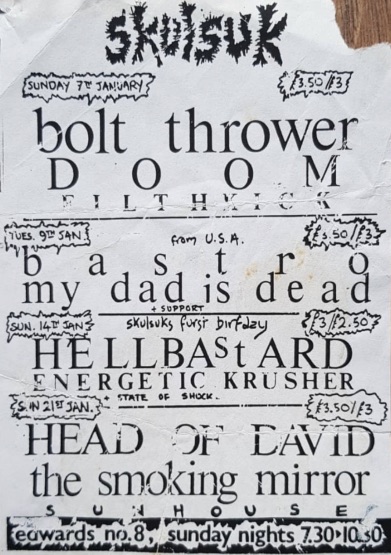 skulsuk
SUNDAY 7TH JANUARY £3.50/£3
bolt thrower
DOOM
FILTHKICK
TUES. 9TH JAN £3.50/£3
from U.S.A.
bastro
my dad is dead
+ SUPPORT
SUN. 14TH JAN skulsuks furst birfday £3/£2.50
HELLBAStARD
ENERGETIC KRUSHER
+ STATE OF SHOCK.
SUN 21ST JAN. £3.50/£3
HEAD OF DAVID
the smoking mirror
SUNHOUSE
edwards no.8, sunday nights 7.30-10.30